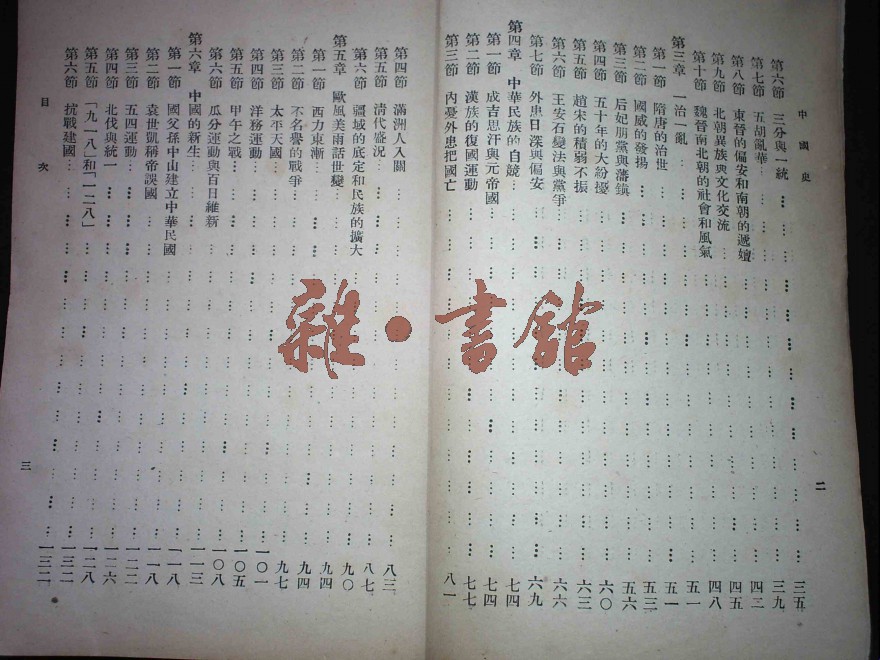 中國史
二
第六節 三分與一統……三五
第七節 五胡亂華……三九
第八節 東晉的偏安和南朝的遞嬗……四二
第九節 北朝異族與文化交流……四五
第十節 魏晉南北朝的社會和風氣……四八
第三章 一治一亂……五一
第一節 隋唐的治世……五一
第二節 國威的發揚……五三
第三節 后妃朋黨與藩鎮……五六
第四節 五十年的大紛擾……六〇
第五節 趙宋的積弱不振……六三
第六節 王安石變法與黨爭……六六
第七節 外患日深與偏安……六九
第四章 中華民族的自競……七四
第一節 成吉思汗與元帝國……七四
第二節 漢族的復國運動……七七
第三節 內憂外患把國亡……八一
第四節 滿洲人入關……八三
第五節 清代盛況……八七
第六節 疆域的底定和民族的擴大……九〇
第五章 歐風美雨話世變……九四
第一節 西力東漸……九四
第二節 不名譽的戰爭……九七
第三節 太平天國……一〇一
第四節 洋務運動……一〇五
第五節 甲午之戰……一〇八
第六節 瓜分運動與百日維新……一一三
第六章 中國的新生……一一八
第一節 國父孫中山建立中華民國……一一八
第二節 袁世凱稱帝誤國……一二二
第三節 五四運動……一二六
第四節 北伐與統一……一二八
第五節 「九一八」和「一二八」……一三二
第六節 抗戰建國……一三二
目次
三
雜·書館